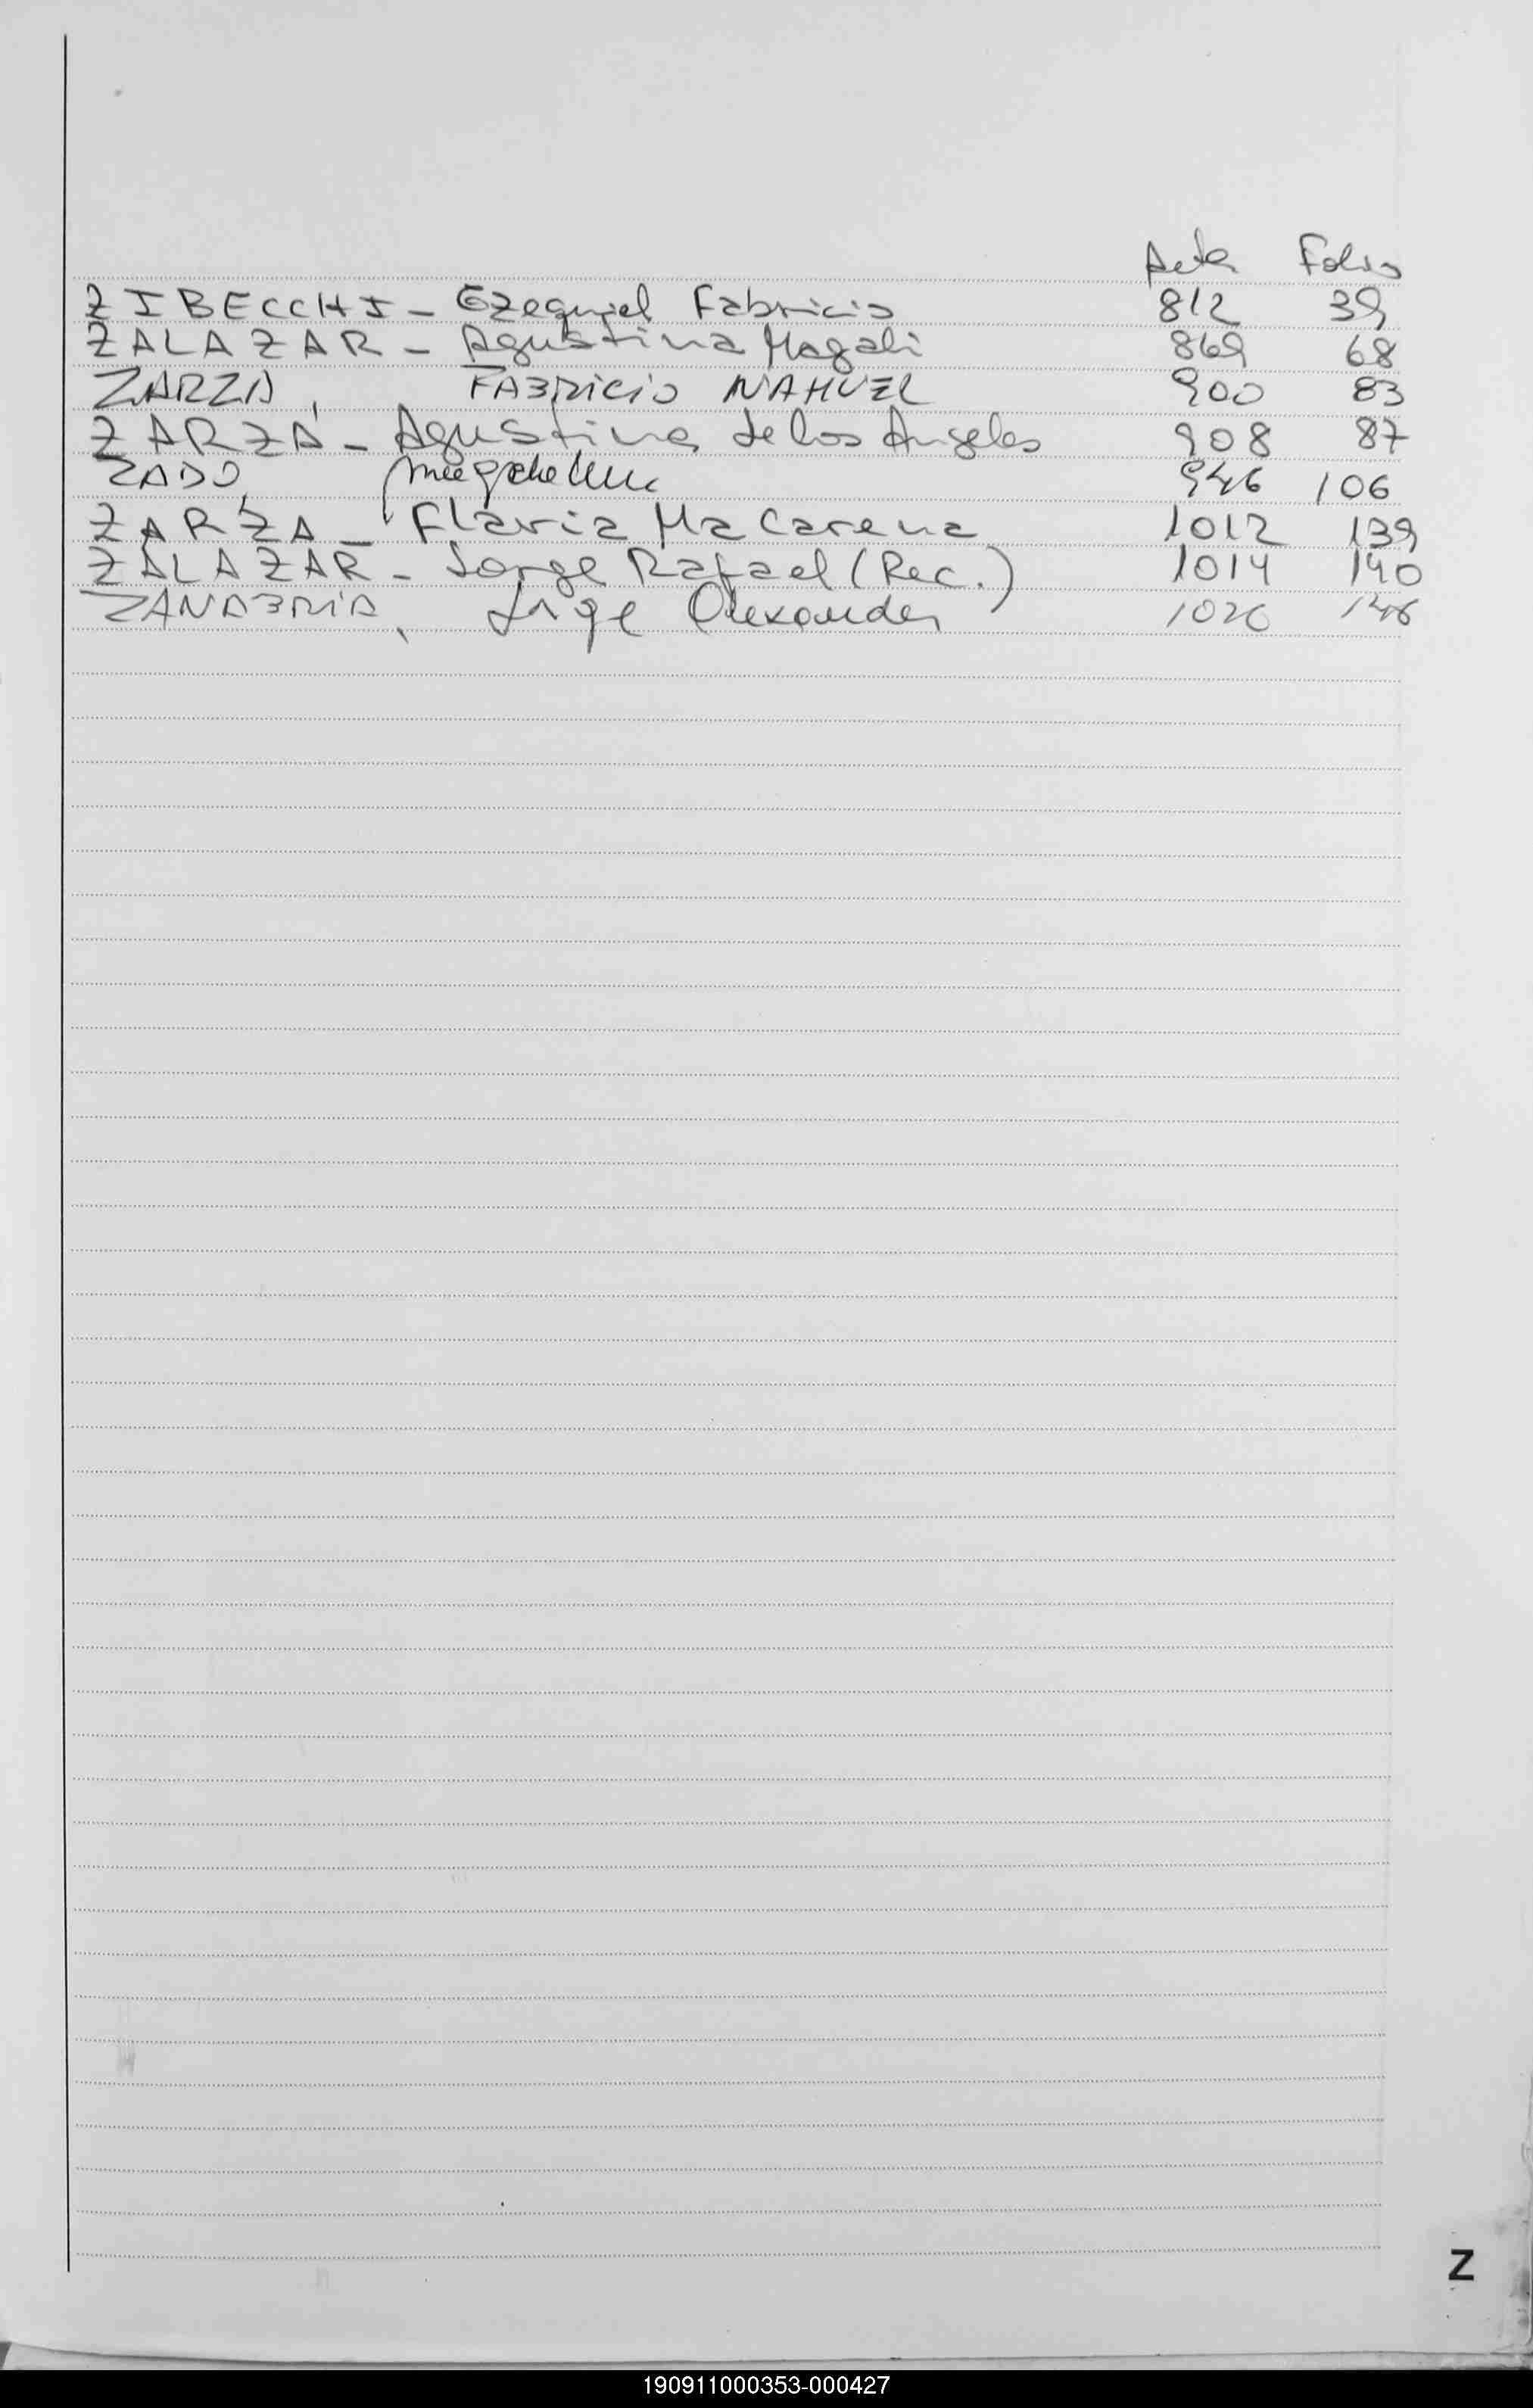 Acta Folio
ZIBECCHI - Ezequiel Fabricio 812 39
ZALAZAR - Agustina Magali 869 68
ZARZA, FABRICIO NAHUEL 900 83
ZARZA - Agustina de los Angeles 908 87
ZADO, 946 106
ZARZA - Flavia Macarena 1012 139
ZALAZAR - Jorge Rafael (Rec.) 1014 140
ZANABRIA, Jorge Alexander 1026 146
Z
190911000353-000427